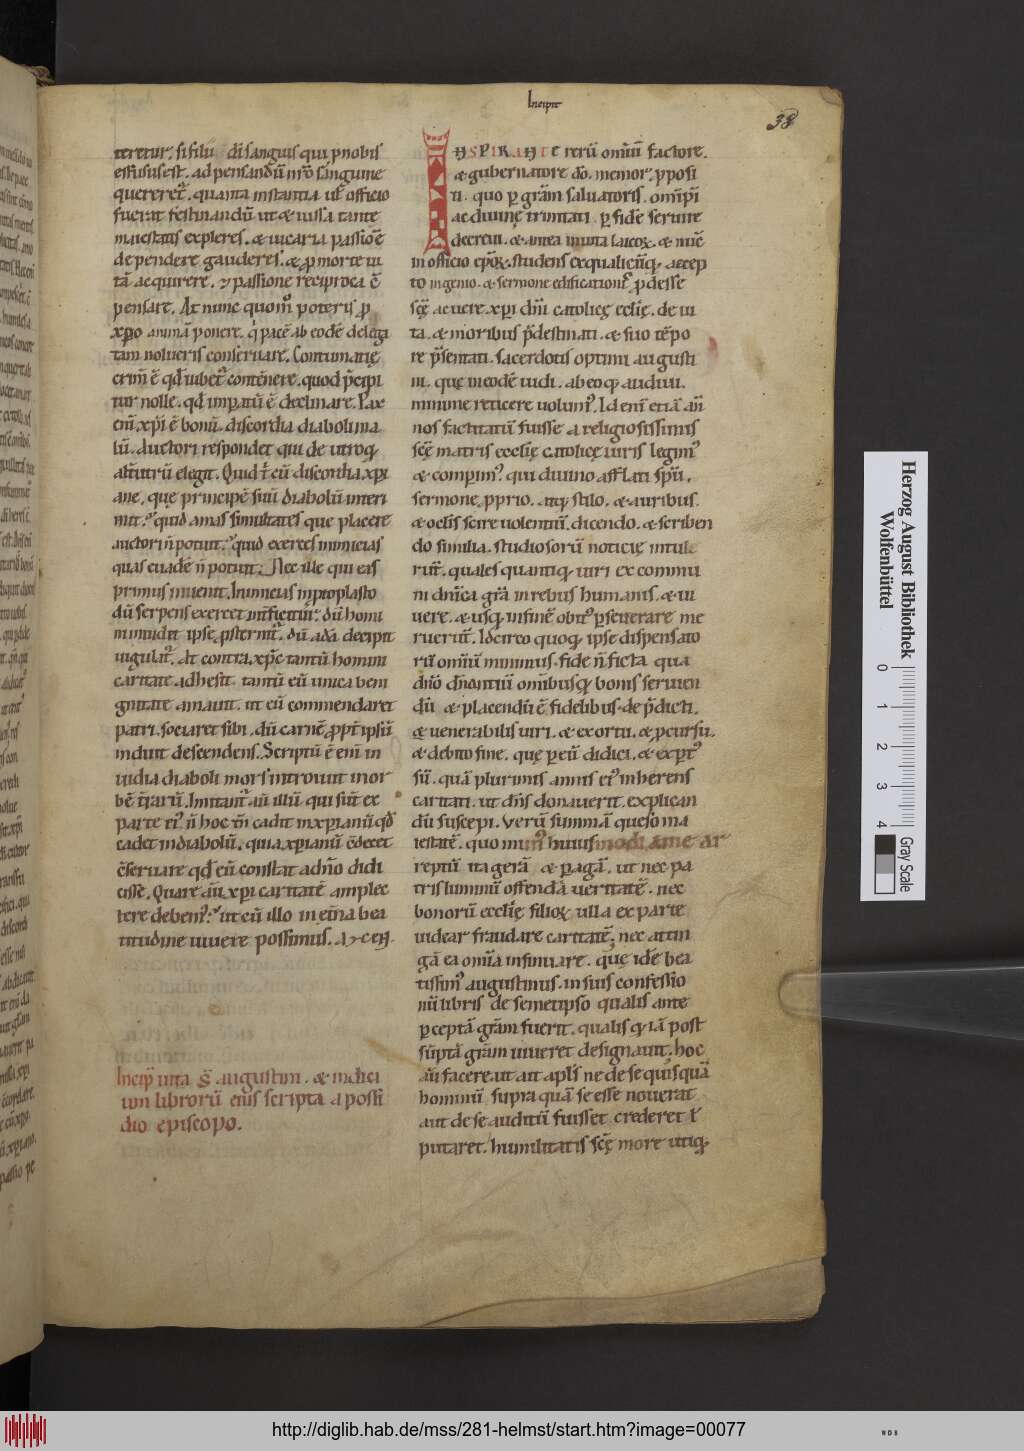 Incipit
38
teretur. si filii dī sanguis qui p nobis
effusus est. ad pensandū nr̄o sanguine
quereret᷑. quanta instantia ut᷑ officio
fuerat festinandū ut & iussa tante
maiestatis expleres. & uicaria passiōe
dependere gauderes. & ꝓ morte ui
tā acquirere. & passione reciproca cō
pensare. At nunc quom̊ poteris ꝓ
xp̄o animā ponere. q' pacē ab eodē delega
tam nolueris conseruare. Contumacię
crim̄ ē qd̄ iubet᷑ contēnere. quod p̄cipi
tur nolle. qd̄ imꝑatū ē declinare. Pax
eni᷑ xp̄i ē bonū. discordia diaboli ma
lū. Auctori respondet qui de utroq;
alt̄utrū elegit. Quid t' cū discordia xp̄i
ane. que principē suū diabolū interi
mit? quid amas simultates que placere
auctori n̄ potunt? quid exerces inimicias
quas euade n̄ potunt? Nec ille qui eas
primus inuenit. Inimicias in ꝓtoplasto
dū serpens exercet int̄ficitur. dū homi
ni inuidit ipse ꝓsternit᷑. dū adā decipit
iugulat᷑. At contra xp̄c tantū homini
caritate adhesit. tantū eū unica beni
gnitate amauit. ut eū commendaret
patri. sociaret sibi. dū carnē ꝓpt̄ ipsū
induit descendens. Scriptū ē eni᷑ in
uidia diaboli mors introiuit in or
bē t̄rarū. Imitant᷑ aū illū qui sūt ex
parte ei᷑. n̄ hoc tn̄ cadit in xp̄ianū qd̄
cadet in diabolū. quia xp̄ianū c̄decet
c̄seruare qd̄ eū constat a dn̄o didi
cisse. Quare aū xp̄i caritatē amplec
tere debem᷑? ut cū illo in et̄na bea
titudine uiuere possimus. AMEN.
Incip̄ uita S̄ augustini. & indici
um librorū eius scripta a possi
dio episcopo.
INSPIRANTE rerū omiū factore.
& gubernatore dō. memor. ꝓposi
ti. quo ꝑ grām saluatoris. om̄ip̄i
ac diuinę trinitati ꝑ fidē seruire
decreui. & antea in uita laicoꝝ. & nūc
in officio ep̄oꝝ. studens ex qualicūq; accep
to ingenio. & sermone edificationi ꝓdesse
sc̄ę ac uere xp̄i dn̄i catolicę eccl̄ię. de ui
ta. & moribus p̄destinati. & suo tēpo
re p̄sentati. sacerdotis optimi augusti
ni. quę in eodē uidi. ab eoq; audiui.
minime reticere uolum᷑. Id eni᷑ etiā an̄
nos factitatū fuisse a religiosissimis
sc̄ę matris eccl̄ię catolicę uiris legim᷑
& comperim᷑. qui diuino afflati sp̄u.
sermone ꝓprio. atq; stilo. & auribus.
& oclis scire uolentiū. dicendo. & scriben
do similia. studiosorū noticię intule
rut̄. quales quantiq; uiri ex commu
ni dn̄ica gr̄a in rebus humanis. & ui
uere. & usq; in finē obit᷑ ꝑseuerare me
ruerut̄. Idcirco quoq; ipse dispensato
rū omiū minimus. fide n̄ ficta qua
dn̄o dn̄antiū om̄ibusq; bonis seruien
dū & placendū ē fidelibus. de p̄dicti.
& uenerabilis uiri. & exortu. & ꝓcursu.
& debito fine. quę ꝑ eū didici. & exꝑt᷑
sū. quā plurimis annis ei᷑ inherens
caritati. ut dn̄s donauerit. explican
dū suscepi. Verū summā queso ma
iestatē. quo mun᷑ huiusmodi a me ar
reptū ita gerā & ꝑagā. ut nec pa
tris luminū offendā ueritatē. nec
bonorū eccl̄ię filioꝝ ulla ex parte
uidear fraudare caritatē. nec attin
gā ea omīa insinuare. quę idē bea
tissim᷑ augustinus. in suis confessio
nū libris de semetipso qualis ante
ꝑceptā grām fuerit. qualisq; iā post
sūptā grām uiueret designauit. hoc
aū facere. ut ait apl̄s ne de se quisquā
hominū supra quā se esse nouerat
aut de se auditū fuisset crederet ł
putaret. humilitatis sc̄ę more utiq;
Herzog August Bibliothek
Wolfenbüttel
0 1 2 3 4
Gray Scale
http://diglib.hab.de/mss/281-helmst/start.htm?image=00077